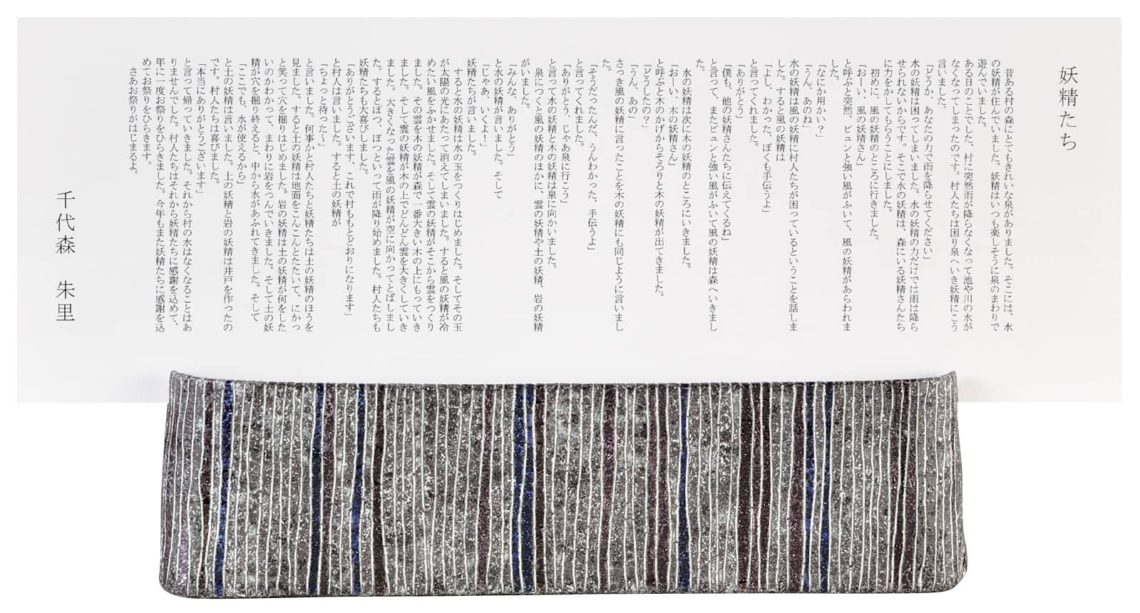 妖精たち
昔ある村の森にとてもきれいな泉がありました。そこには、水
の妖精が住んでいました。妖精はいつも楽しそうに泉のまわりで
遊んでいました。
ある日のことでした。村に突然雨が降らなくなって池や川の水が
なくなってしまったのです。村人たちは困り泉へいき妖精にこう
言いました。
「どうか、あなたの力で雨を降らせてください」
水の妖精は困ってしまいました。水の妖精の力だけでは雨は降ら
せられないからです。そこで水の妖精は、森にいる妖精さんたち
に力をかしてもらうことにしました。
初めに、風の妖精のところに行きました。
「おーい、風の妖精さん」
と呼ぶと突然、ビュンと強い風がふいて、風の妖精があらわれま
した。
「なにか用かい？」
「うん、あのね」
水の妖精は風の妖精に村人たちが困っているということを話しま
した。すると風の妖精は
「よし、わかった。ぼくも手伝うよ」
と言ってくれました。
「ありがとう」
「僕も、他の妖精さんたちに伝えてくるね」
と言って、またビュンと強い風がふいて風の妖精は森へいきまし
た。
水の妖精は次に木の妖精のところにいきました。
「おーい、木の妖精さん」
と呼ぶと木のかげからそろりと木の妖精が出てきました。
「どうしたの？」
「うん、あの」
さっき風の妖精に言ったことを木の妖精にも同じように言いまし
た。
「そうだったんだ、うんわかった、手伝うよ」
と言ってくれました。
「ありがとう、じゃあ泉に行こう」
と言って水の妖精と木の妖精は泉に向かいました。
泉につくと風の妖精のほかに、雲の妖精や土の妖精、岩の妖精
がいました。
「みんな、ありがとう」
と水の妖精が言いました。そして
「じゃあ、いくよ！」
妖精たちが言いました。
すると水の妖精は水の玉をつくりはじめました。そしてその玉
が太陽の光にあたって消えてしまいました。すると風の妖精が冷
めたい風をふかせました。そして雲の妖精がそこから雲をつくり
ました。その雲を木の妖精が森で一番大きい木の上にもっていき
ました。そして雲の妖精が木の上でどんどん雲を大きくしていき
ました。大きくなった雲を風の妖精が空に向かってとばしまし
た。するとぽつぽつといって雨が降り始めました。村人たちも
妖精たちも大喜びしました。
「ありがとうございます。これで村ももとどおりになります」
と村人は言いました。すると土の妖精が
「ちょっと待ったー」
と言いました。何事かと村人たちと妖精たちは土の妖精のほうを
見ました。すると土の妖精は地面をこんこんとたたいて、にかっ
と笑って穴を掘りはじめました。岩の妖精は土の妖精が何をした
いのかわかって、まわりに岩をつんでいきました。そして土の妖
精が穴を掘り終えると、中から水があふれてきました。そして
「ここでも、水が使えるから」
と土の妖精は言いました。土の妖精と岩の妖精は井戸を作ったの
です。村人たちは喜びました。
「本当にありがとうございます」
と言って帰っていきました。それから村の水はなくなることはあ
りませんでした。村人たちはそれから妖精たちに感謝を込めて、
年に一度お祭りをひらきました。今年もまた妖精たちに感謝を込
めてお祭りをひらきます。
さあお祭りがはじまるよ。
千代森　朱里